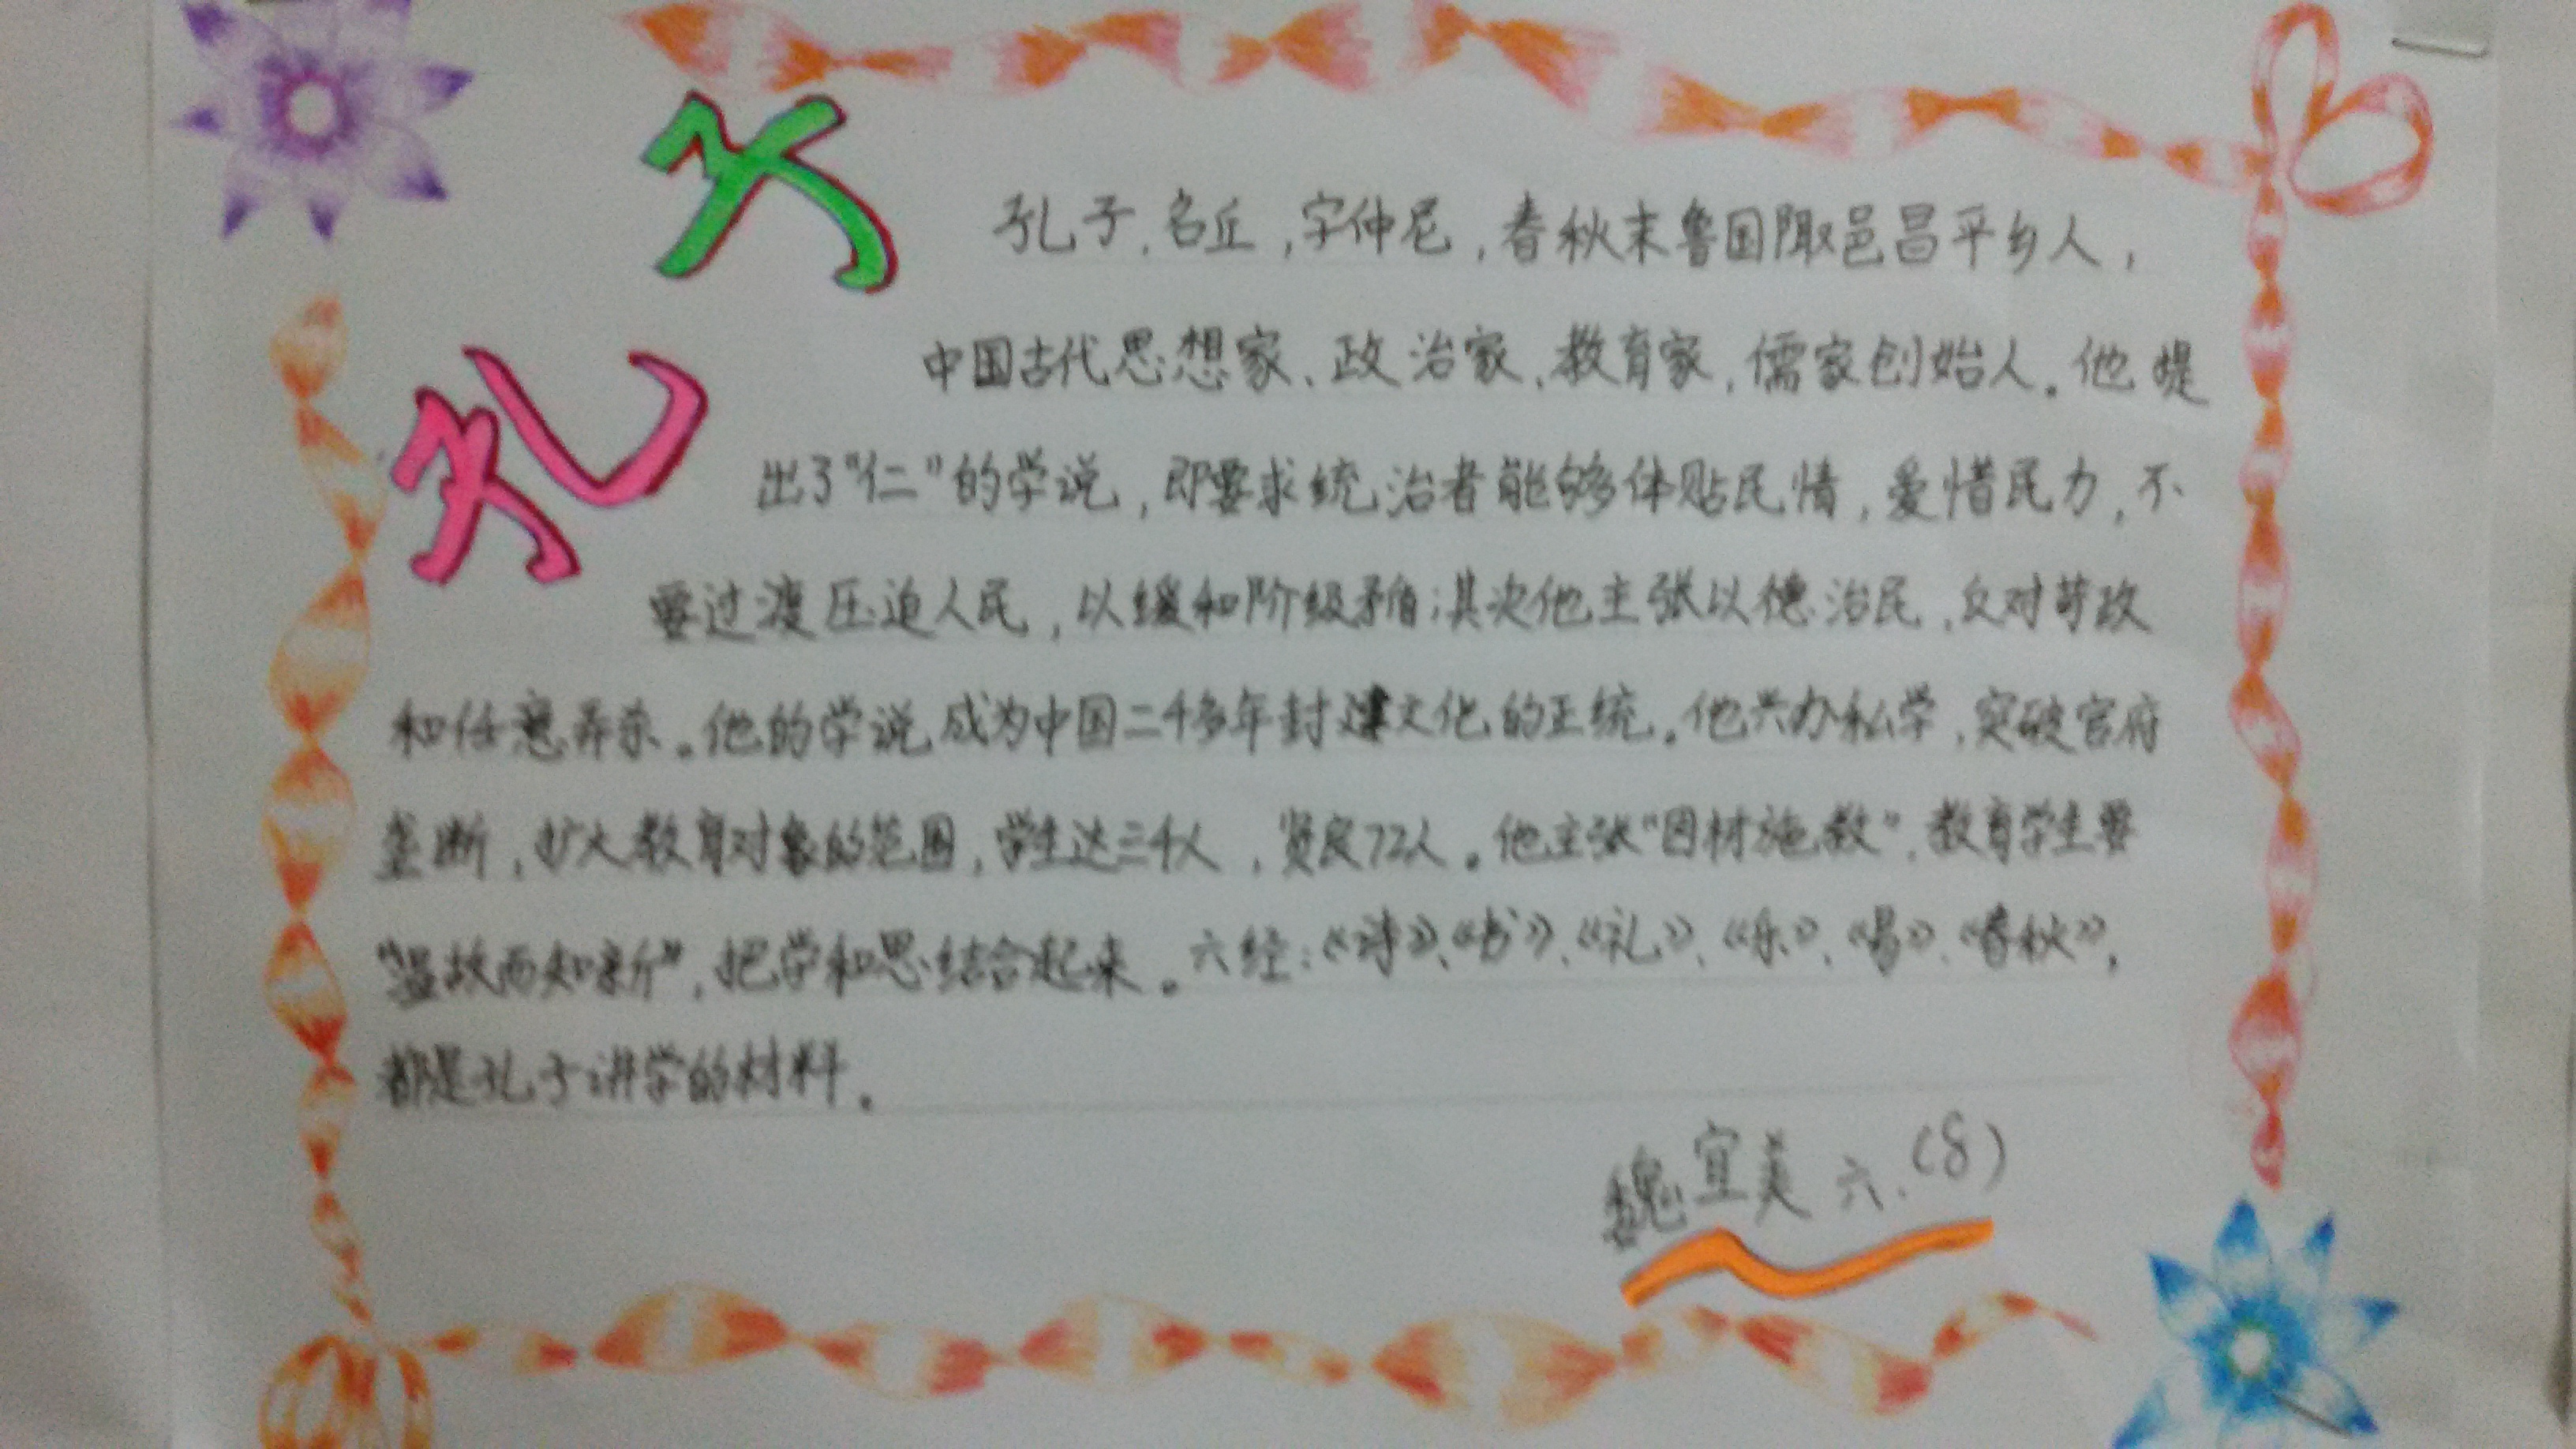 孔子
孔子,名丘,字仲尼,春秋末鲁国陬邑昌平乡人,
中国古代思想家、政治家、教育家,儒家创始人。他提
出了“仁”的学说,即要求统治者能够体贴民情,爱惜民力,不
要过渡压迫人民,以缓和阶级矛盾;其次他主张以德治民,反对苛政
和任意弄杀。他的学说成为中国二千多年封建文化的正统。他兴办私学,突破官府
垄断,扩大教育对象的范围,学生达三千人,贤良72人。他主张“因材施教”,教育学生要
“温故而知新”,把学和思结合起来。六经:《诗》、《书》、《礼》、《乐》、《易》、《春秋》,
都是孔子讲学的材料。
魏宜美 六.(8)